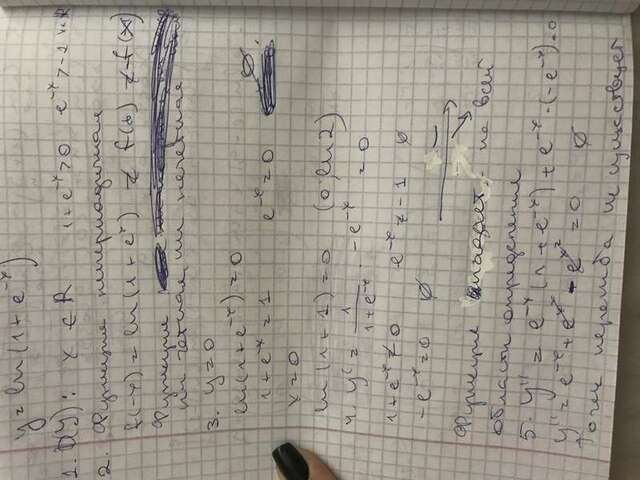 y = ln(1+e^-x)
1. D(y): x ∈ R 1+e^-x > 0 e^-x > -1
2. Функция непериодичная
f(-x) = ln(1+e^x) ≠ f(x) ≠ -f(x)
Функция
ни четная ни нечетная
3. y=0
ln(1+e^-x) = 0
1+e^-x = 1 e^-x = 0 ∅
x=0
ln(1+1) = 0 (0; ln2)
4. y' = 1/(1+e^-x) · -e^-x = 0
1+e^-x ≠ 0 e^-x ≠ -1 ∅
-e^-x = 0 ∅
Функция падает - на всей
области определения
5. y'' = e^-x(1+e^-x) + e^-x·(-e^-x) = 0
y'' = e^-x + e^-x² - e^-x² = 0 ∅
Точек перегиба не существует